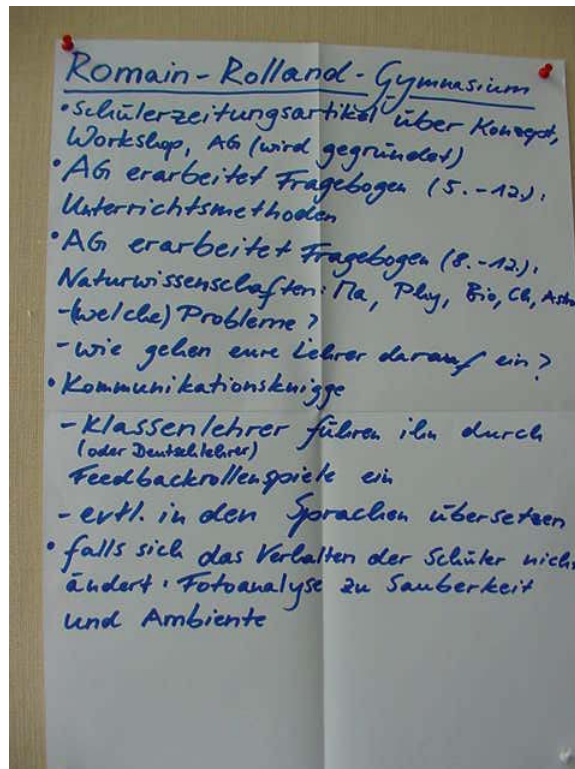 Romain-Rolland-Gymnasium
• Schülerzeitungsartikel über Konzept,
Workshop, AG (wird gegründet)
• AG erarbeitet Fragebogen (5.-12.):
Unterrichtsmethoden
• AG erarbeitet Fragebogen (8.-12.):
Naturwissenschaften: Ma, Phy, Bio, Ch, Astro
-(welche) Probleme?
- wie gehen eure Lehrer darauf ein?
• Kommunikationsknigge
- Klassenlehrer führen ihn durch
(oder Deutschlehrer)
Feedbackrollenspiele ein
- evtl. in den Sprachen übersetzen
• falls sich das Verhalten der Schüler nicht
ändert: Fotoanalyse zu Sauberkeit
und Ambiente